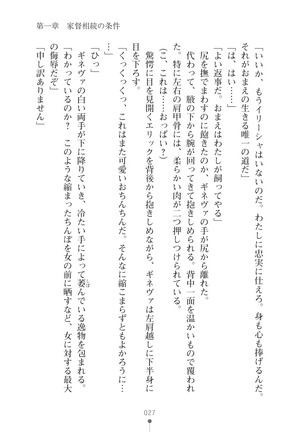 第一章　家督相続の条件
「いいか、もうイリーシャはいないのだ。わたしに忠実に仕えろ。身も心も捧げるんだ。
それがおまえの生きる唯一の道だ」
「は、はい……」
「よい返事だ。おまえはわたしが飼ってやる」
尻を撫でまわすのに飽きたのか、ギネヴァの手が尻から離れた。
代わって、腋の下から腕が回ってきて抱きしめられる。背中一面を温もりで覆われ
て、特に左右の肩甲骨には、柔らかい肉が二つ押しつけられている。
（こ、これは……おっぱい？）
驚愕に目を見開くエリックを背後から抱きしめながら、ギネヴァは左肩越しに下半身に
目を下ろす。
「くっくっくっ、これはまた可愛いおちんちんだ。そんなに縮こまらずともよかろうに…
…」
「ひっ」
ギネヴァの白い両手が下に降りていき、冷たい手によって萎んでいる逸物を包まれる。
「わかっているのか？　このような縮まったちんぽを女の前に晒すなど、女に対する最大
の侮辱だぞ」
「申し訳ありません」
027